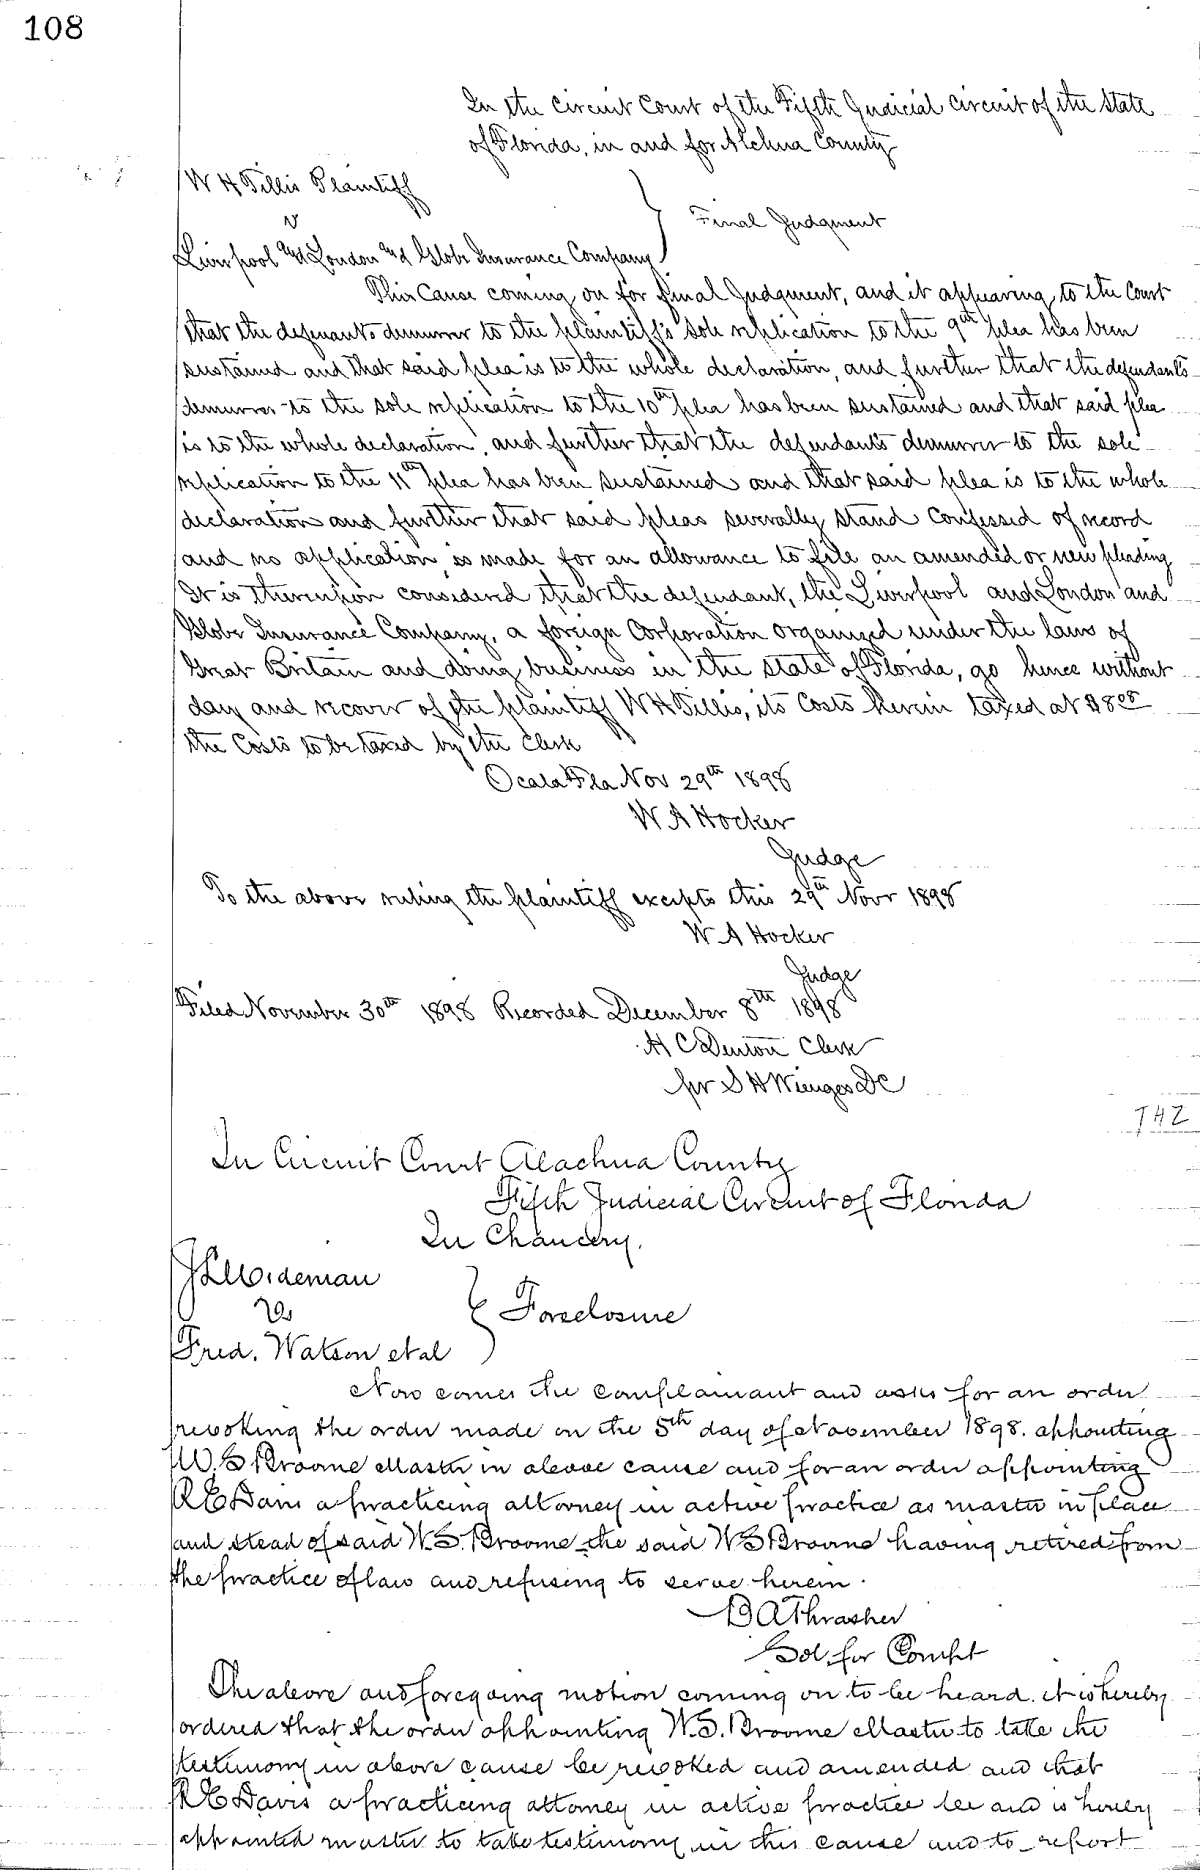 108
In the Circuit Court of the Fifth Judicial Circuit of the State
of Florida, in and for Alchua County
W H Tillis Plaintiff
v
Final Judgment
Liverpool and London and Globe Insurance Company
This Cause coming on for final Judgment, and it appearing to the Court
that the defenants demurrer to the plaintiff's sole replication to the 9th plea has been
sustained and that said plea is to the whole declaration, and further that the defendants
demurrer to the sole replication to the 10th plea has been sustained and that said plea
is to the whole declaration, and further that the defendants demurrer to the sole
replication to the 11th plea has been sustained and that said plea is to the whole
declaration and further that said pleas severally stand confessed of record
and no application is made for an allowance to file an amended or new pleading
It is thereupon considered that the defendant, the Liverpool and London and
Globe Insurance Company, a foreign Corporation organized under the laws of
Great Britain and doing business in the State of Florida, go hence without
day and recover of the plaintiff W H Tillis, its Costs herein taxed at $8
the Costs to be taxed by the Clerk
Ocala Fla Nov 29th 1898
W A Hocker
Judge
To the above ruling the plaintiff excepts this 29th Novr 1898
W A Hocker
Judge
Filed November 30th 1898 Recorded December 8th 1898
H C Denton Clerk
pr S H Wienges DC
In Circuit Court Alachua County
Fifth Judicial Circuit of Florida
In Chancery.
J L Wideman
Vs
Foreclosure
Fred. Watson et al
Now comes the complainant and asks for an order
revoking the order made on the 5th day of November 1898. appointing
W. S. Broome Master in above cause and for an order appointing
R E Davis a practicing attorney in active practice as master in place
and stead of said W. S. Broome the said W S Broome having retired from
the practice of law and refusing to serve herein.
B A Thrasher
Sol. for Complt
The above and foregoing motion coming on to be heard. it is hereby
ordered that the order appointing W. S. Broome Master to take the
testimony in above cause be revoked and amended and that
R E Davis a practicing attorney in active practice be and is hereby
appointed master to take testimony in this cause and to report